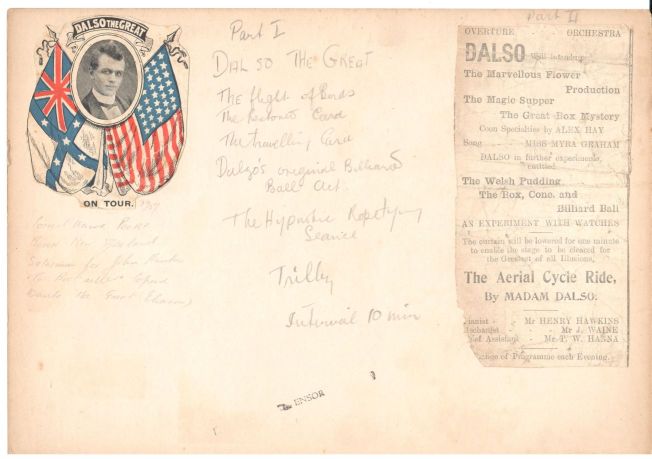 DALSO THE GREAT
ON TOUR.
Part I
DALSO THE GREAT
The flight of Birds
The Restored Card
The travelling Card
Dalso's original Billiard
Ball Act.
The Hypnotic Ropetying
Seance
Trilby
Interval 10 min
ENSOR
Part II
OVERTURE ORCHESTRA
DALSO will introduce
The Marvellous Flower
Production
The Magic Supper
The Great Box Mystery
Coon Specialties by ALEX HAY
Song MISS MYRA GRAHAM
DALSO in further experiments,
entitled
The Welsh Pudding
The Box, Cone, and
Billiard Ball
AN EXPERIMENT WITH WATCHES
The curtain will be lowered for one minute
to enable the stage to be cleared for
the Greatest of all Illusions,
The Aerial Cycle Ride,
By MADAM DALSO.
Pianist - Mr HENRY HAWKINS
Mr J. WAINE
Assistant - Mr. P. W. HANNA
of Programme each Evening.